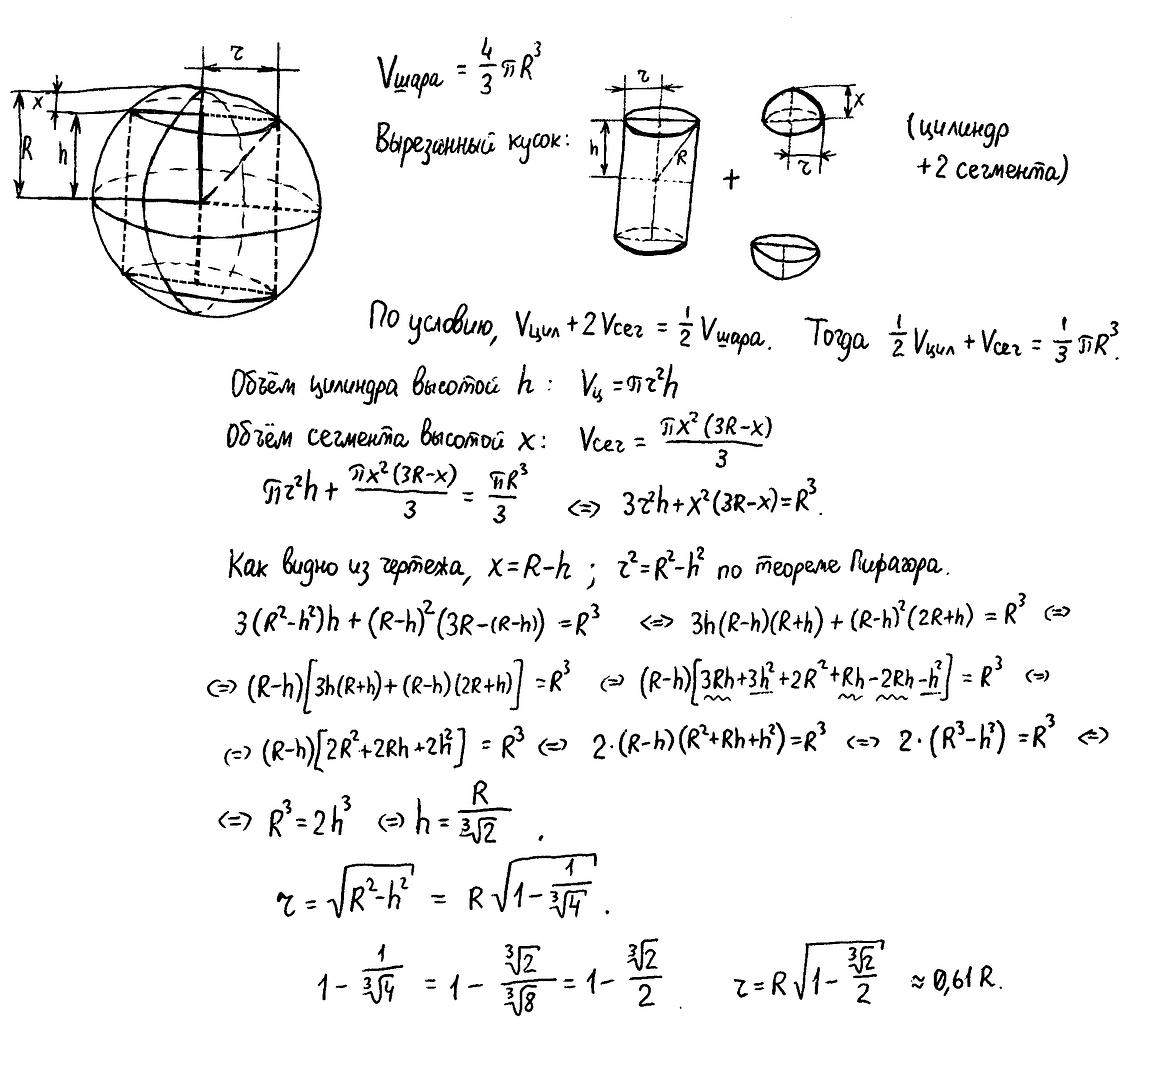 τ
x
R
h
Vшара = 4/3 πR³
Вырезанный кусок:
τ
h
R
+
x
τ
(цилиндр
+2 сегмента)
По условию, Vцил + 2Vсег = 1/2 Vшара. Тогда 1/2 Vцил + Vсег = 1/3 πR³.
Объём цилиндра высотой h: Vц = πτ²h
Объём сегмента высотой x: Vсег = πx²(3R-x)/3
πτ²h + πx²(3R-x)/3 = πR³/3 <=> 3τ²h + x²(3R-x) = R³.
Как видно из чертежа, x = R-h ; τ² = R²-h² по теореме Пифагора.
3(R²-h²)h + (R-h)²(3R-(R-h)) = R³ <=> 3h(R-h)(R+h) + (R-h)²(2R+h) = R³ <=>
<=> (R-h)[3h(R+h) + (R-h)(2R+h)] = R³ <=> (R-h)[3Rh+3h²+2R²+Rh-2Rh-h²] = R³ <=>
<=> (R-h)[2R²+2Rh+2h²] = R³ <=> 2·(R-h)(R²+Rh+h²) = R³ <=> 2·(R³-h³) = R³ <=>
<=> R³ = 2h³ <=> h = R/∛2 .
τ = √(R²-h²) = R√(1 - 1/∛4) .
1 - 1/∛4 = 1 - ∛2/∛8 = 1 - ∛2/2 . τ = R√(1 - ∛2/2) ≈ 0,61 R.